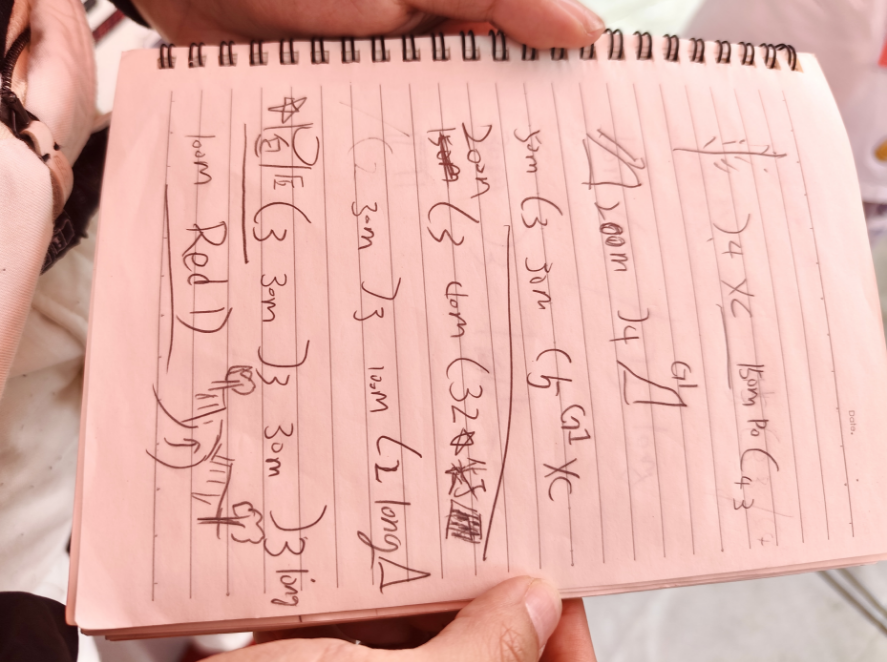 DATE.
)4 XC 150m Po (4 3
200m )4 G1
50m (3 30m (5 G1 XC
200m
(3 40m (3 2
(2 30m )3 100m (2 long
(3 30m )3 30m )3 long
100m Red 1)